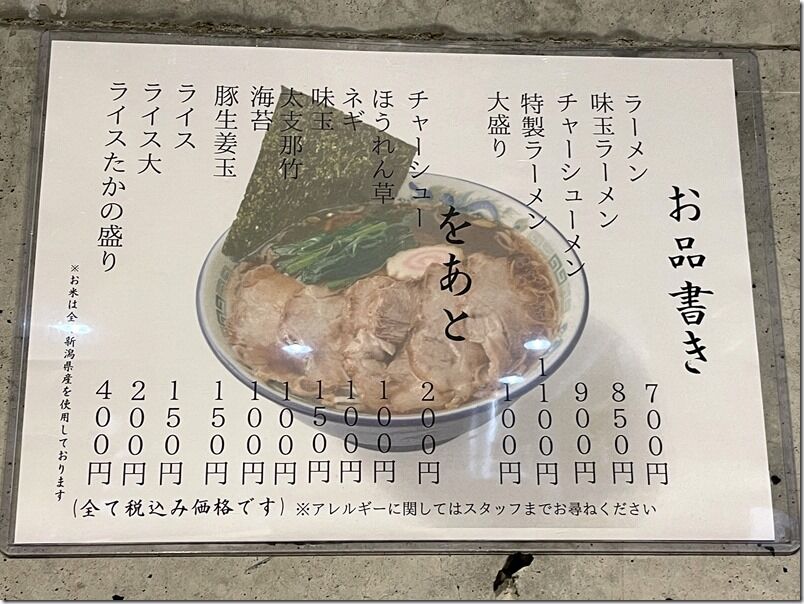 お品書き
ラーメン 700円
味玉ラーメン 850円
チャーシューメン 900円
特製ラーメン 1100円
大盛り 100円
をあと
チャーシュー 200円
ほうれん草 100円
ネギ 100円
味玉 150円
太支那竹 100円
海苔 100円
豚生姜玉 150円
ライス 150円
ライス大 200円
ライスたかの盛り 400円
※お米は全 新潟県産を使用しております
(全て税込み価格です) ※アレルギーに関してはスタッフまでお尋ねください